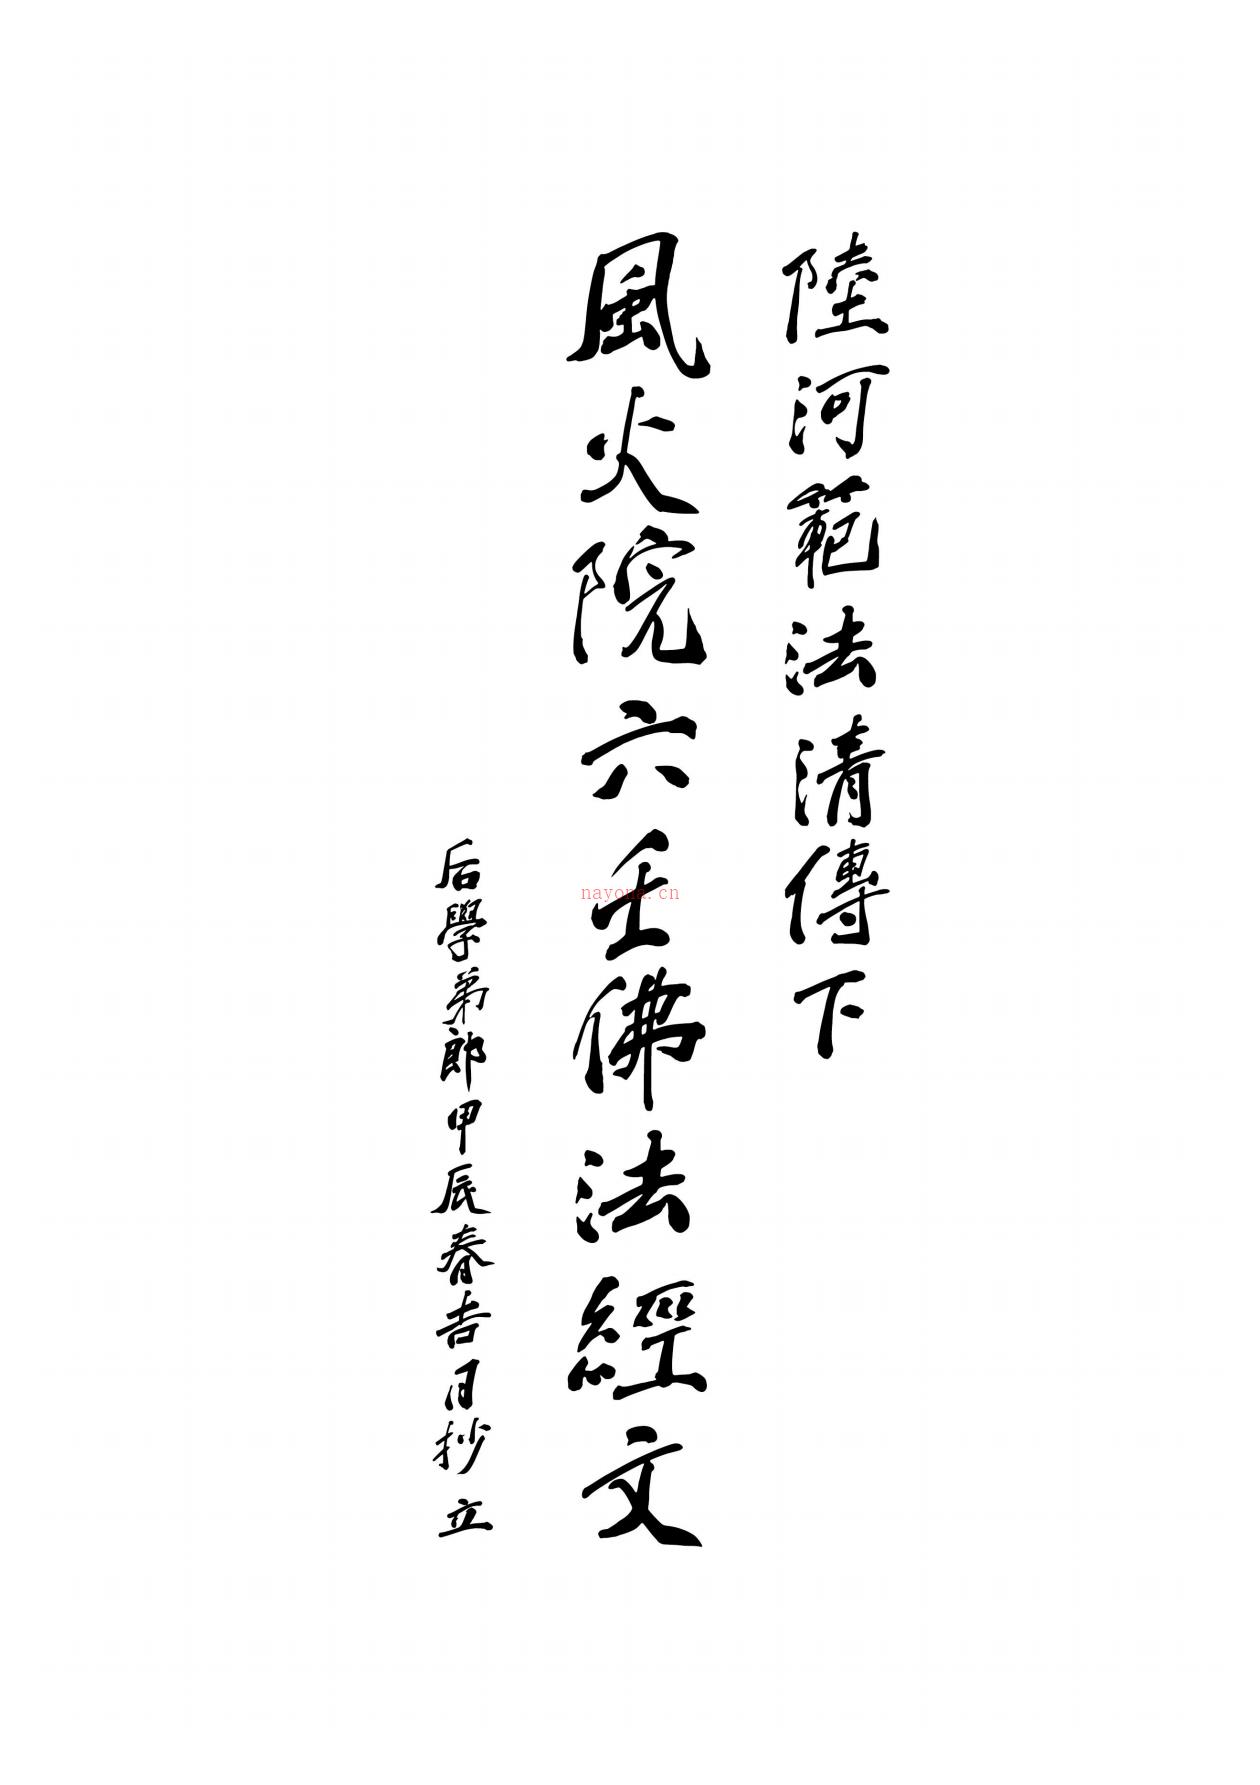 陸河範法清傳下
風火院六壬佛法經文
后學弟郎甲辰春吉月抄立
nayona.cn